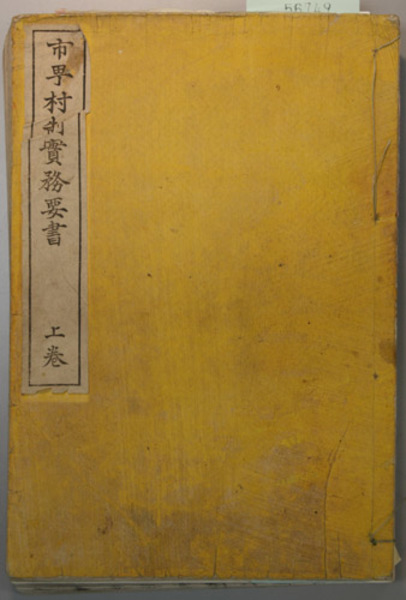 市町村制實務要書
上巻